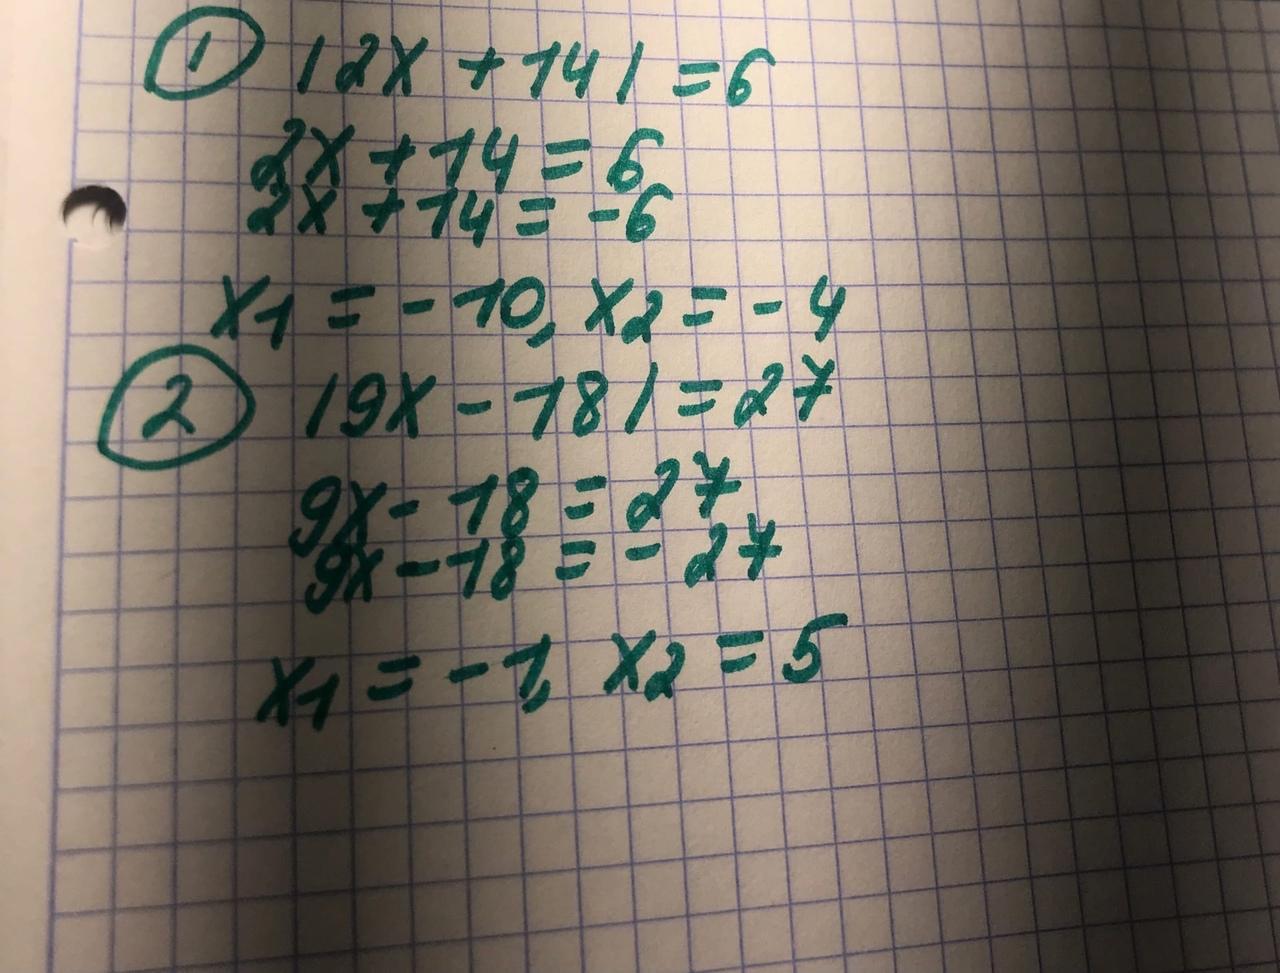 ① |2x + 14| = 6
2x + 14 = 6
2x + 14 = -6
x1 = -10, x2 = -4
② |9x - 18| = 27
9x - 18 = 27
9x - 18 = -27
x1 = -1, x2 = 5